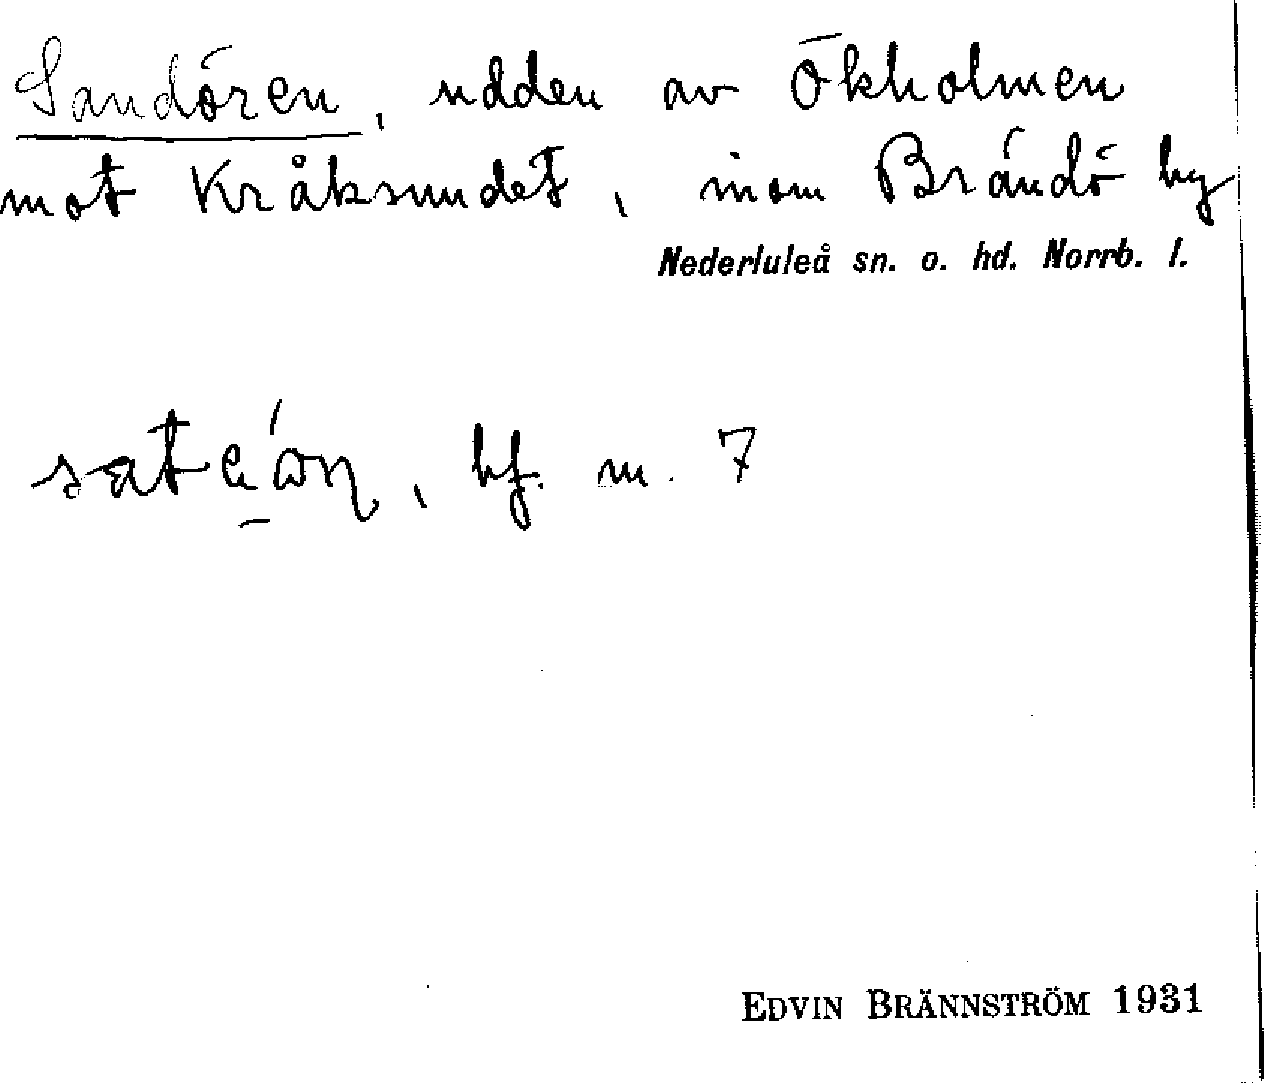 Sandören, udden av Ökholmen
mot Kråksundet, inom Brändö by
Nederluleå sn. o. hd. Norrb. l.
bf. m. 7
EDVIN BRÄNNSTRÖM 1931